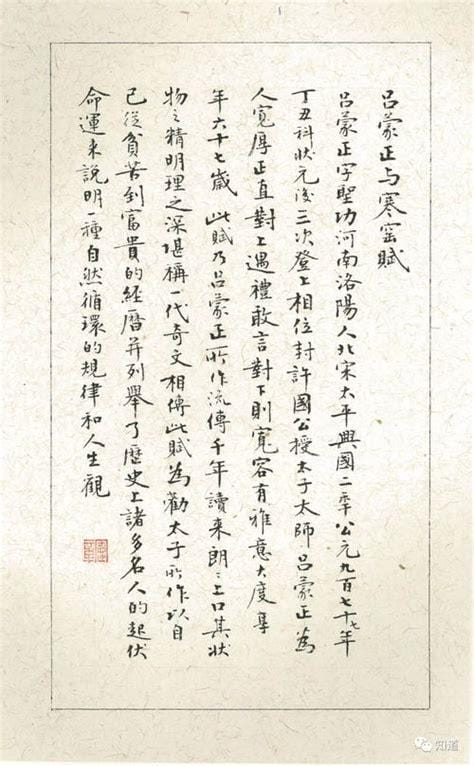 吕蒙正与寒窑賦
吕蒙正字聖功河南洛陽人北宋太平興國二年公元九百七十七年
丁丑科狀元後三次登上相位封許國公授太子太師吕蒙正為
人寬厚正直對上遇禮敢言對下則寬容有雅意大度享
年六十七歲此賦乃吕蒙正所作流傳千年讀来朗〻上口其狀
物之精明理之深堪稱一代奇文相傳此賦為勸太子所作以自
己從貧苦到富貴的經曆并列舉了歷史上諸多名人的起伏
命運来說明一種自然循環的規律和人生觀
知道